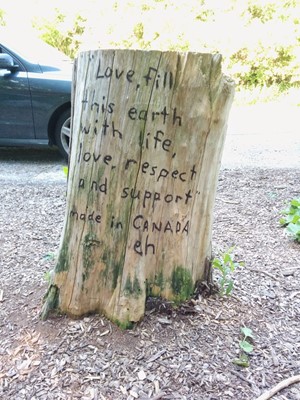 "Love, fill
this earth
with life,
love, respect
and support"
made in CANADA
eh